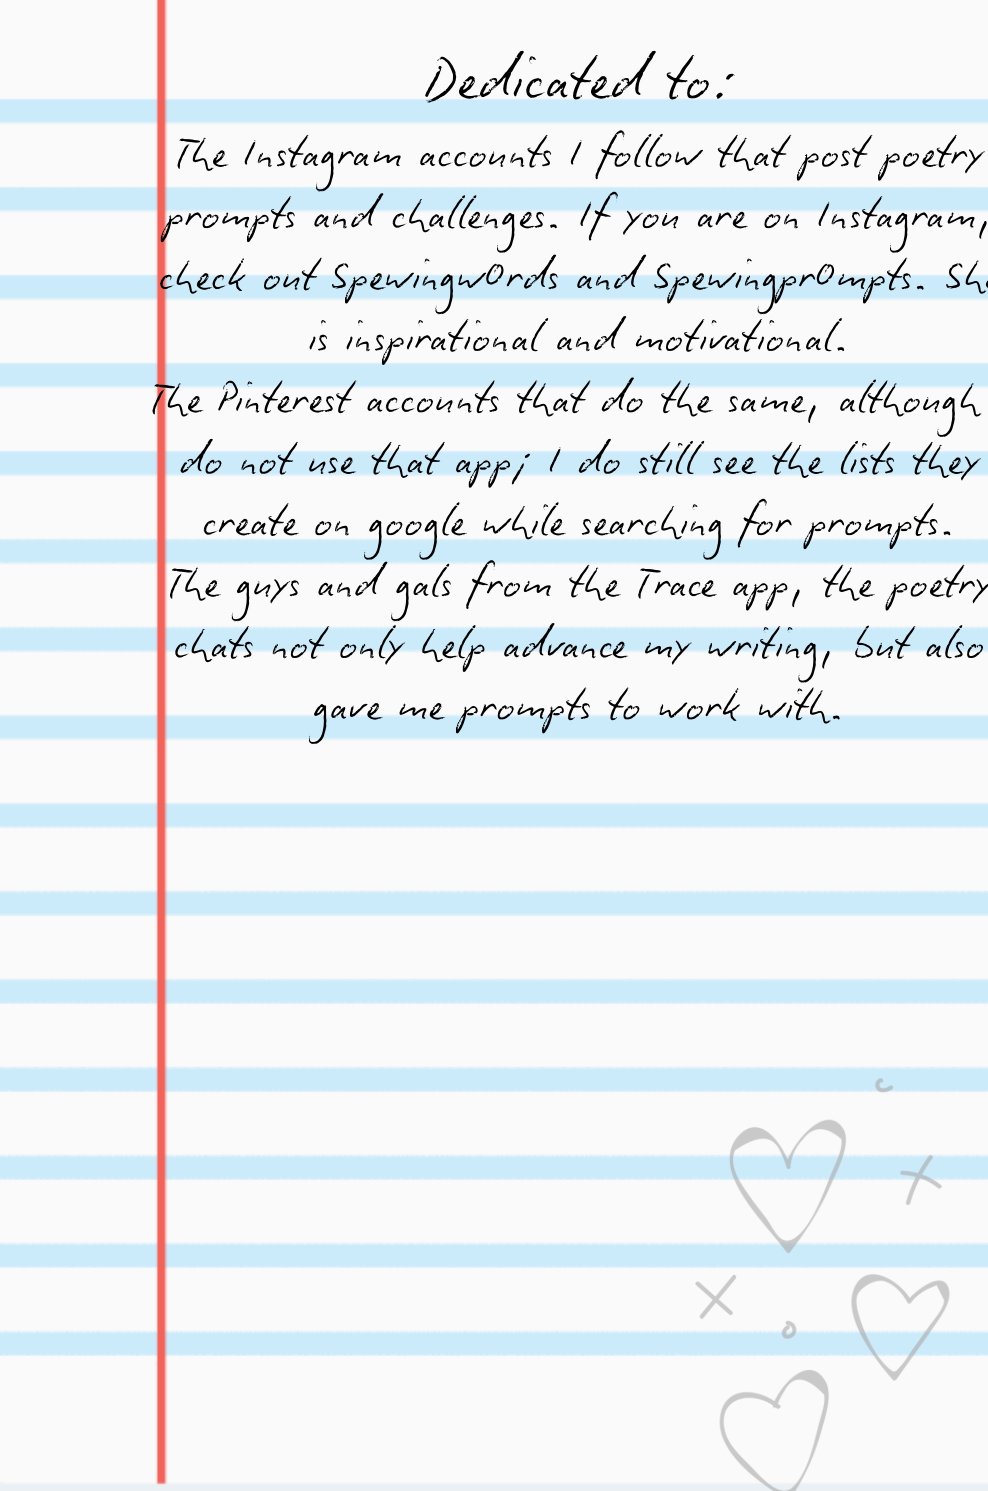 Dedicated to:
The Instagram accounts I follow that post poetry
prompts and challenges. If you are on Instagram,
check out Spewingw0rds and Spewingpr0mpts. She
is inspirational and motivational.
The Pinterest accounts that do the same, although
do not use that app; I do still see the lists they
create on google while searching for prompts.
The guys and gals from the Trace app, the poetry
chats not only help advance my writing, but also
gave me prompts to work with.